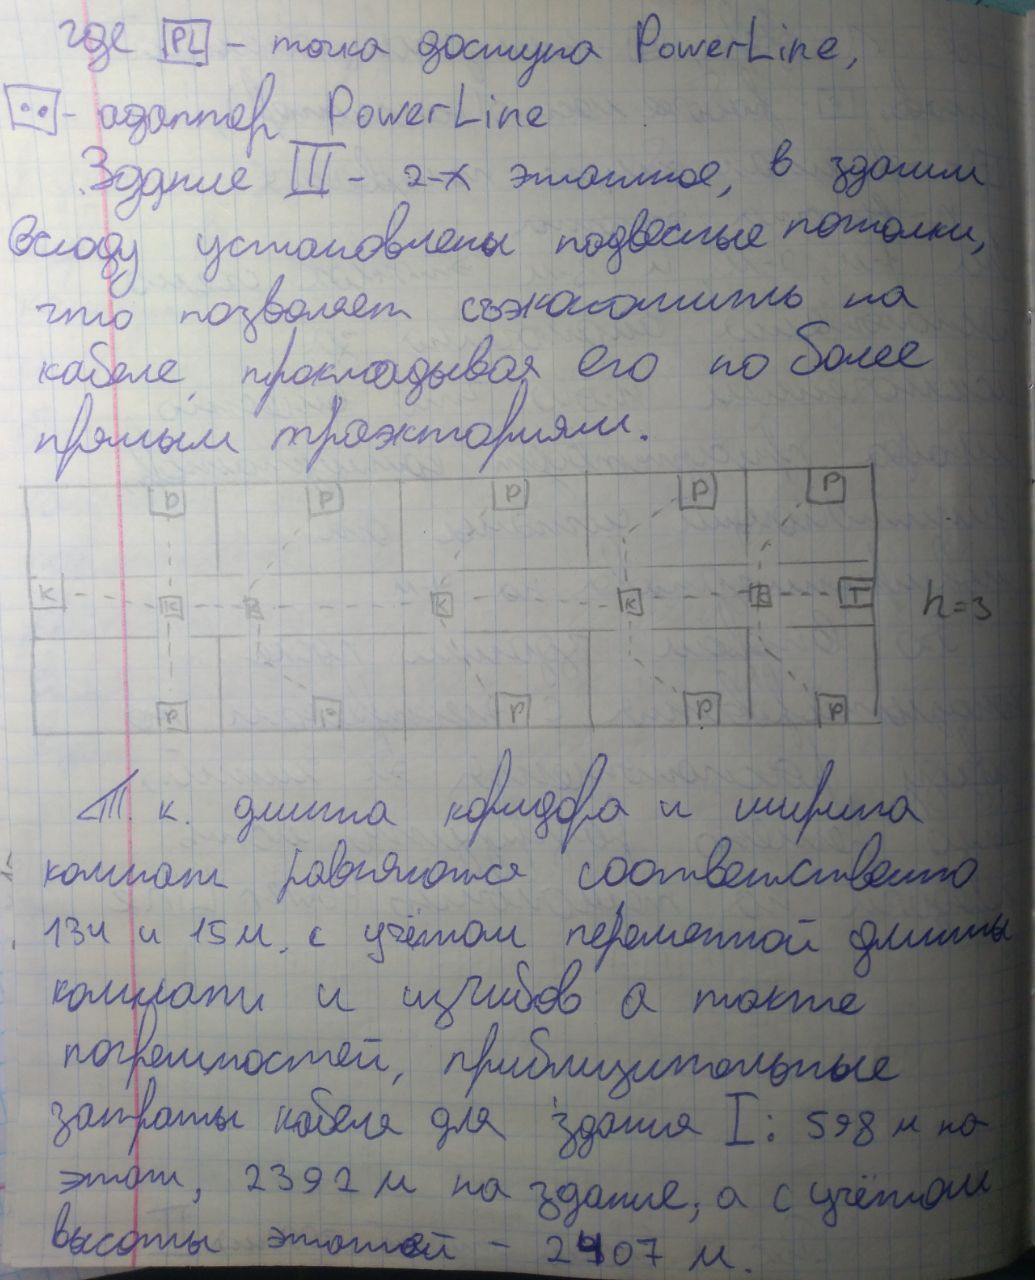 где PL - точка доступа PowerLine,
- адаптер PowerLine
Здание III - 2-х этажное, в здании
всюду установлены подвесные потолки,
что позволяет съэкономить на
кабеле, прокладывая его по более
прямым траэкториям.
P P P P P
К К К К К К Т h=3
P P P P P
Т.к. длина коридора и ширина
комнат равняются соответственно
134 и 15м, с учётом переменной длины
комнаты и изгибов а также
погрешностей, приблизительные
затраты кабеля для здания I: 598 м на
этаж, 2392 м на здание, а с учётом
высоты этажей - 2407 м.